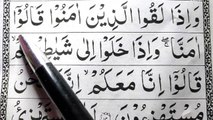 وَاِذَا لَقُوا الَّذِيۡنَ اٰمَنُوۡا قَالُوۡٓا
اٰمَنَّا ۖۚ وَاِذَا خَلَوۡا اِلٰى شَيٰطِيۡنِهِمۡ
قَالُوۡٓا اِنَّا مَعَكُمۡ ۙ اِنَّمَا نَحۡنُ
مُسۡتَهۡزِءُوۡنَ